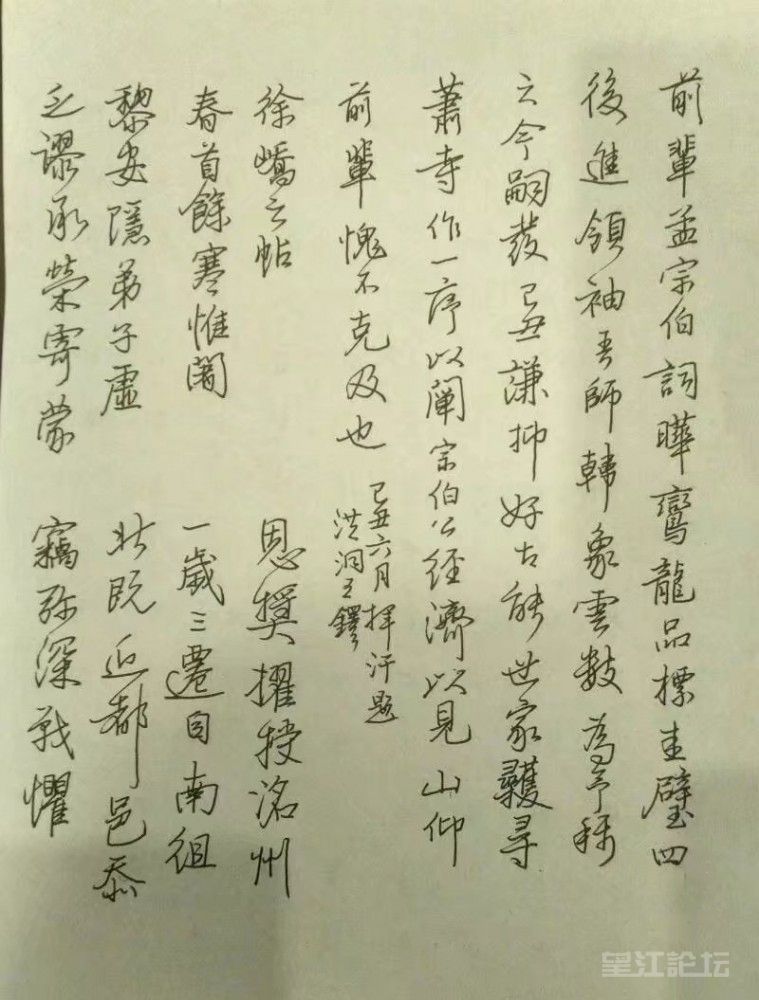 前輩孟宗伯詞曄鸞龍品標圭璧四
後進領袖吾師韓象雲數為予稱
云今嗣發己丑謙抑好古能世家尋
蕭寺作一序以闡宗伯公經濟以見山仰
前輩愧不克及也
己丑六月揮汗題
洪洞王鐸
徐嶠之帖
春首餘寒惟闍
黎安隱弟子虛
乏謬承榮寄蒙
恩獎擢授洺州
一歲三遷自南徂
北既近都邑忝
竊弥深戰懼
望江論坛